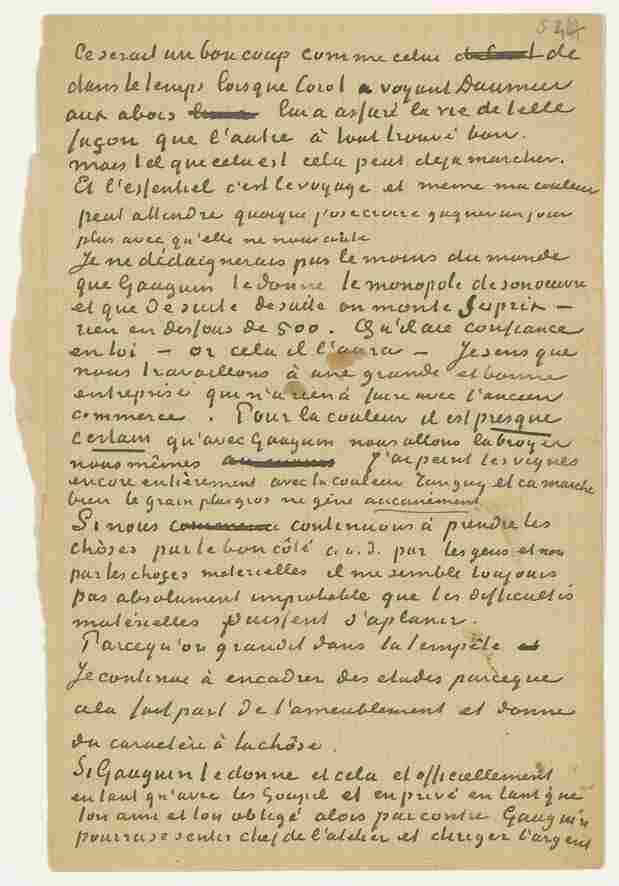 Ce serait un bon coup comme celui de
dans le temps lorsque Corot voyant Daumier
aux abois lui a assuré la vie de telle
façon que l'autre à tout trouvé bon.
mais tel que cela est cela peut deja marcher.
Et l'essentiel c'est le voyage et meme ma couleur
peut attendre quoique j'ose croire gagner un jour
plus avec qu'elle ne nous coute
Je ne dédaignerais pas le moins du monde
que Gauguin te donne le monopole de son oeuvre
et que de suite de suite on monte les prix –
rien en dessous de 500. Qu'il aie confiance
en toi – or cela il l'aura – Je sens que
nous travaillons à une grande et bonne
entreprise qui n'a rien à faire avec l'ancien
commerce. Pour la couleur il est presque
certain qu'avec Gauguin nous allons la broyer
nous mêmes J'ai peint les vignes
encore entièrement avec la couleur Tanguy et ca marche
bien le grain plus gros ne gêne aucunement
Si nous continuons à prendre les
chôses par le bon côté c.a.d. par les gens et non
par les choses materielles il me semble toujours
pas absolument improbable que les difficultés
matérielles puissent s'aplanir.
Parcequ'on grandit dans la tempête
Je continue à encadrer des etudes parceque
cela fait part de l'ameublement et donne
du caractère à la chôse.
Si Gauguin te donne et cela et officiellement
en tant qu'avec les Goupil et en privé en tant que
ton ami et ton obligé alors par contre Gauguin
pourra se sentir chef de l'atelier et diriger l'argent